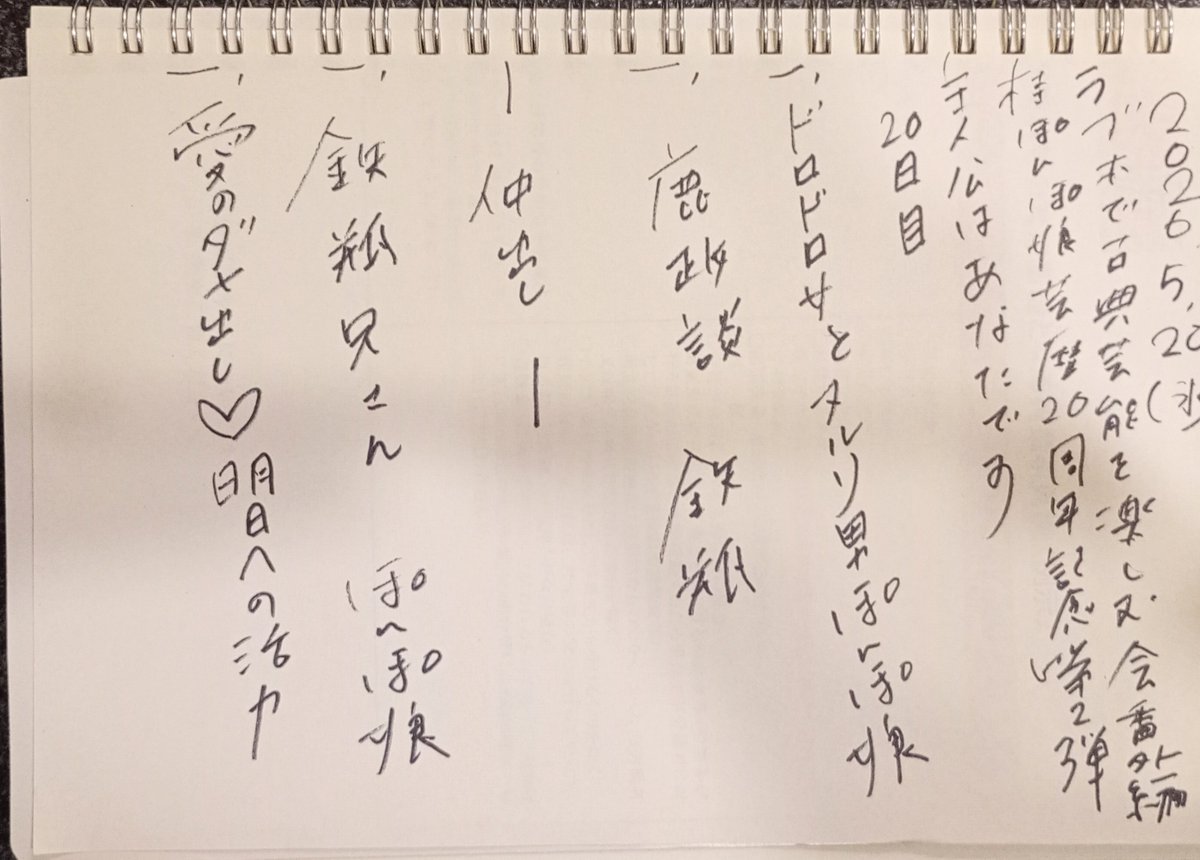 2026.5.20(水
ラブホで古典芸能を楽しむ会番外編
桂ぽんぽ娘芸歴20周年記念第2弾
主人公はあなたです
20日目
一、ドロドロサとタルリ男 ぽんぽ娘
一、鹿政談 鉄瓶
ー仲出しー
一、鉄瓶兄さん ぽんぽ娘
一、愛のダメ出し♡明日への活力